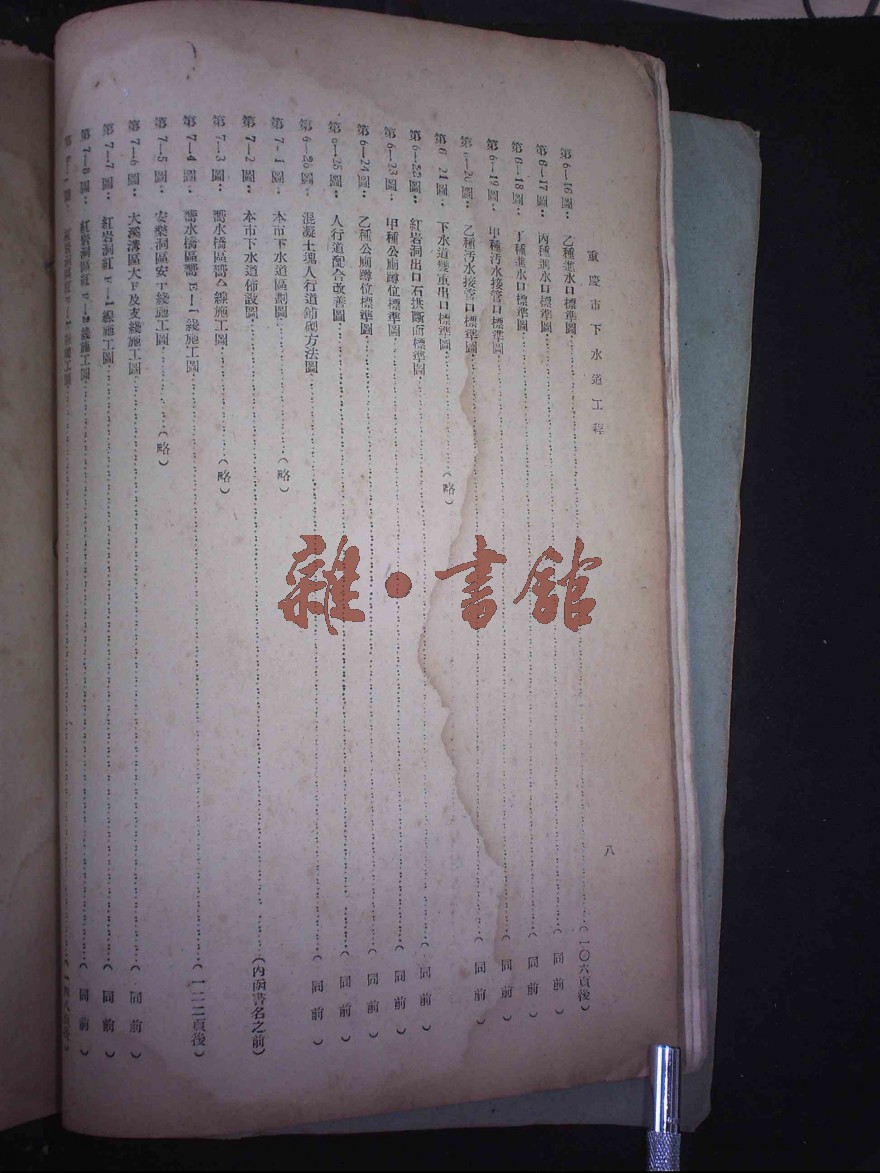 重慶市下水道工程
八
第6—16圖：乙種進水口標準圖……（一〇六頁後）
第6—17圖：丙種進水口標準圖……（同前）
第6—18圖：丁種進水口標準圖……（同前）
第6—19圖：甲種汚水接管口標準圖……（同前）
第6—20圖：乙種汚水接管口標準圖……（同前）
第6—21圖：下水道雙重出口標準圖……（略）
第6—22圖：紅岩洞出口石拱斷面標準圖……（同前）
第6—23圖：甲種公廁蹲位標準圖……（同前）
第6—24圖：乙種公廁蹲位標準圖……（同前）
第6—25圖：人行道配合改善圖……（同前）
第6—26圖：混凝土塊人行道鋪砌方法圖……（同前）
第7—1圖：本市下水道區劃圖……（略）
第7—2圖：本市下水道佈設圖……（內函書名之前）
第7—3圖：喬水橋區喬A線施工圖……（略）
第7—4圖：喬水橋區喬E—1綫施工圖……（一二二頁後）
第7—5圖：安樂洞區安下綫施工圖……（略）
第7—6圖：大溪溝區大F及支綫施工圖……（同前）
第7—7圖：紅岩洞紅F—1線施工圖……（同前）
第7—8圖：紅岩洞區紅F—2綫施工圖……（同前）
雜·書館